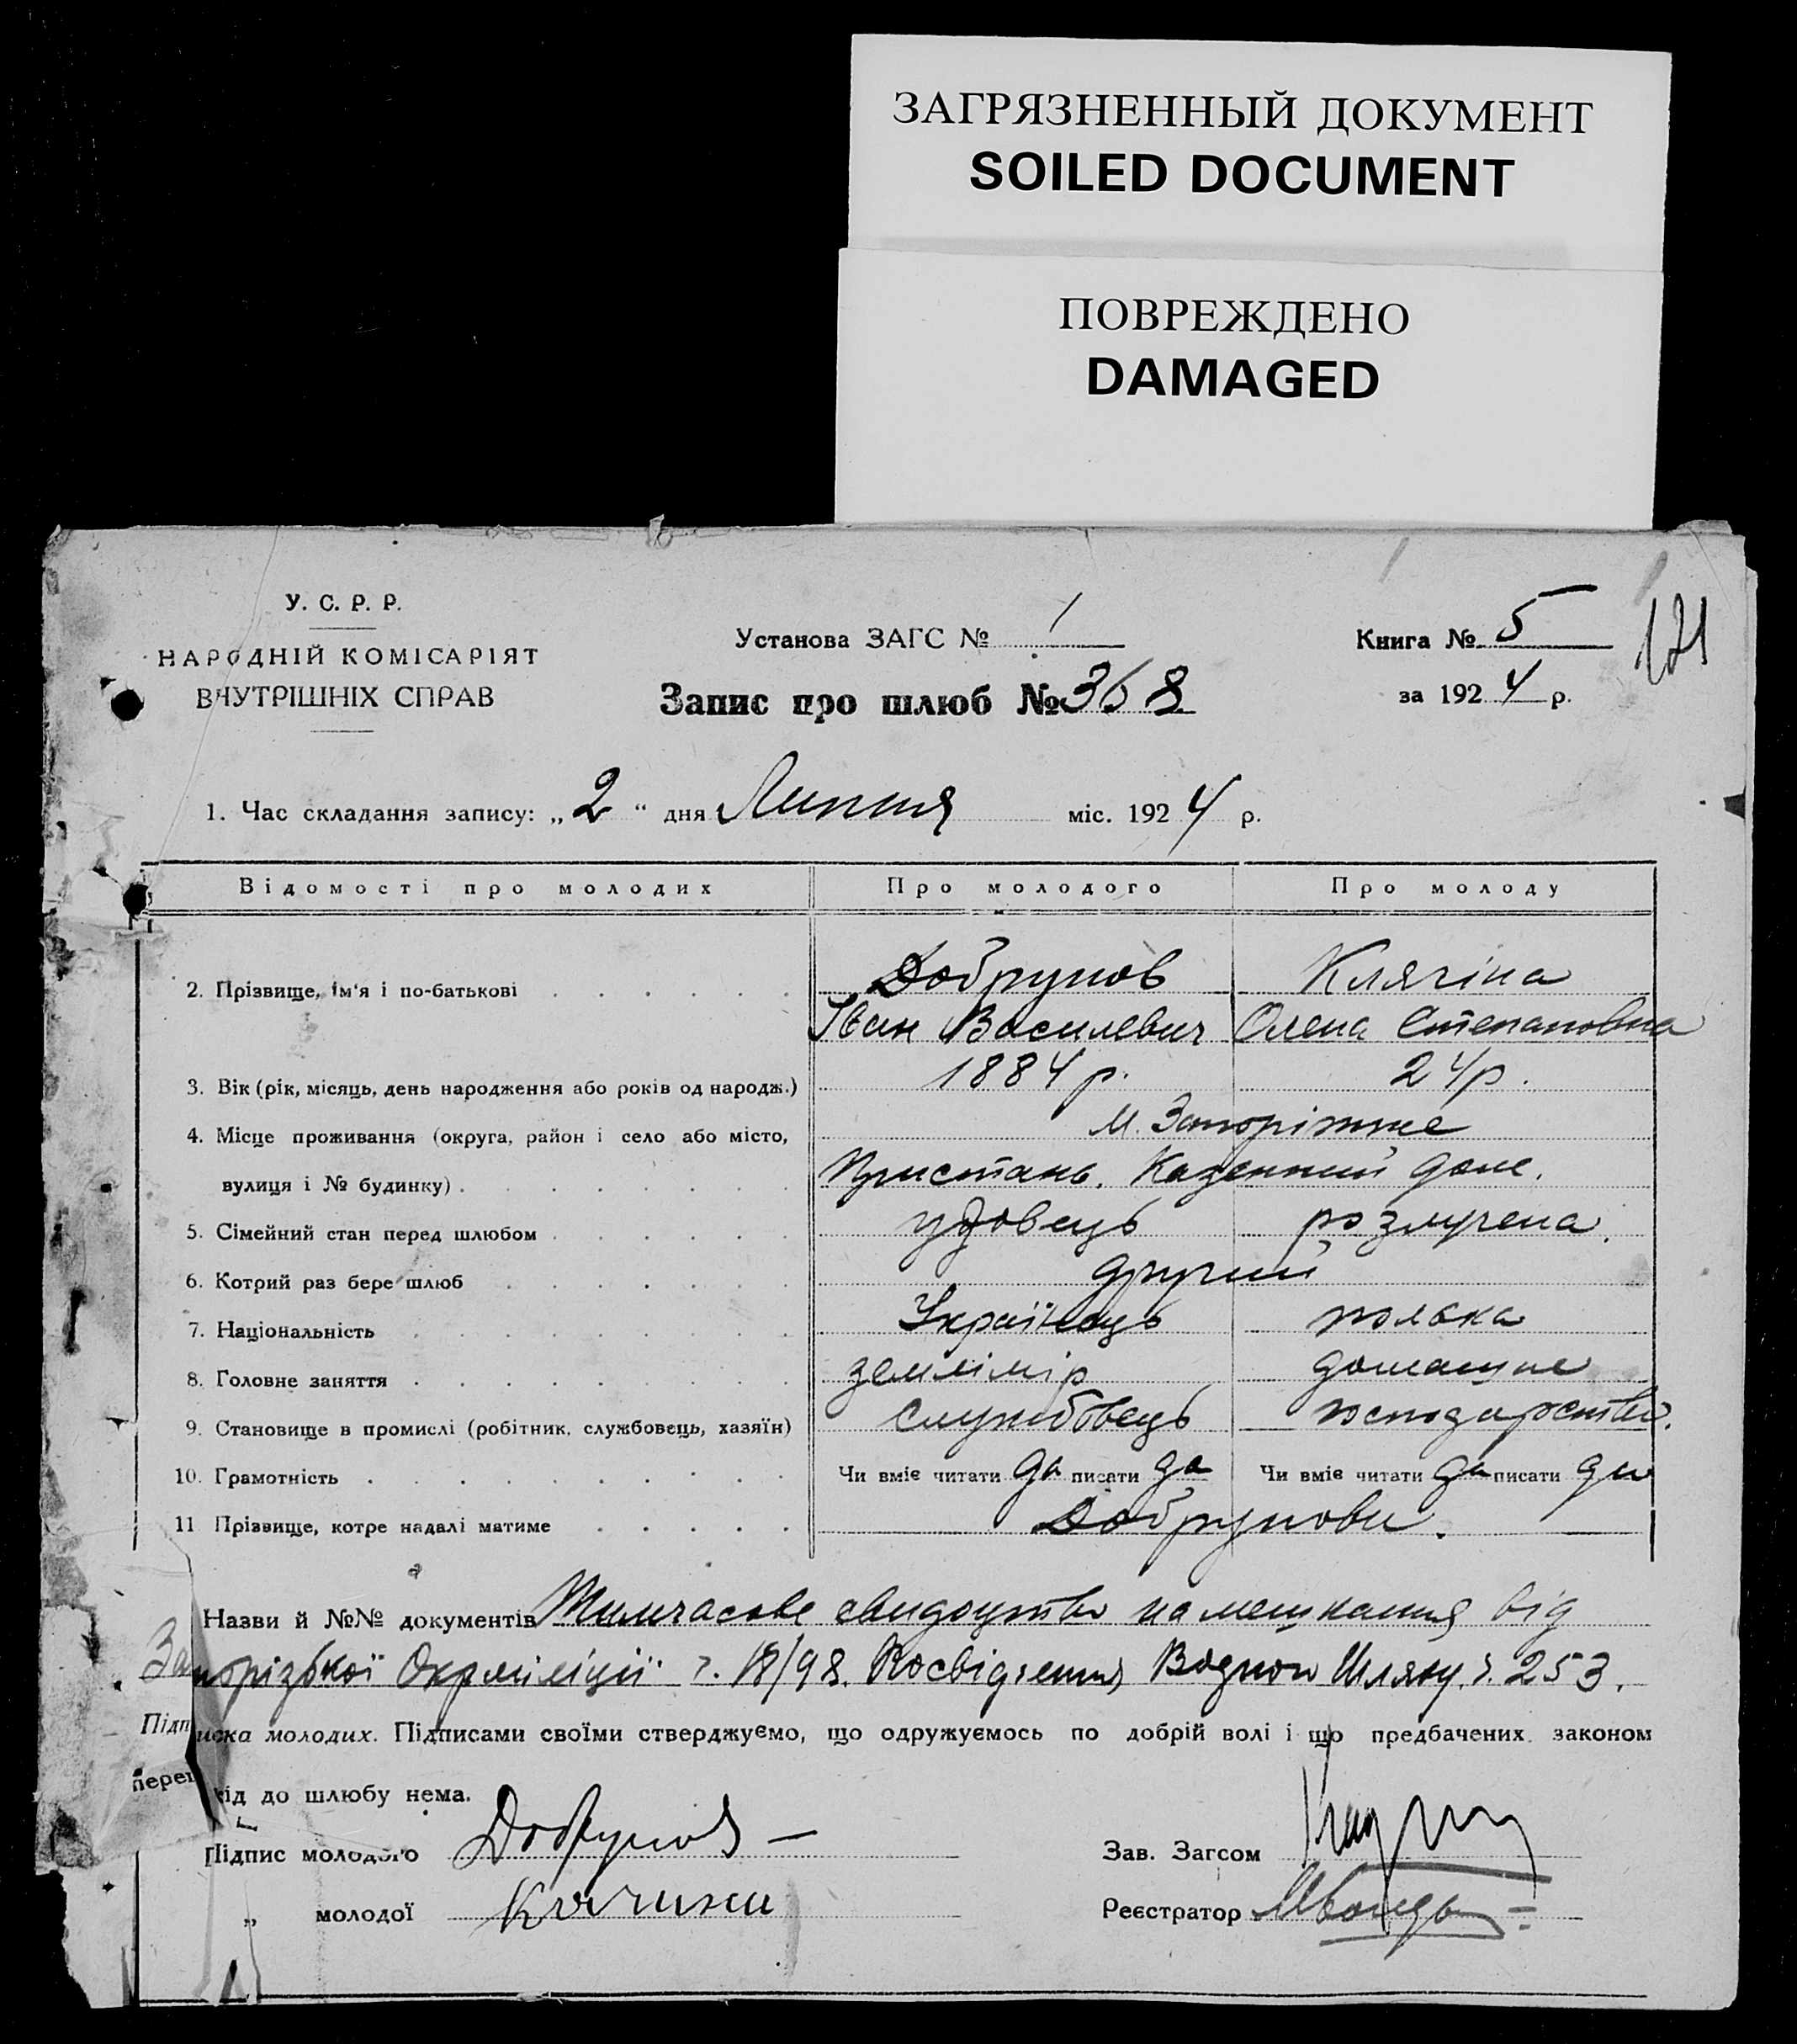 ЗАГРЯЗНЕННЫЙ ДОКУМЕНТ
SOILED DOCUMENT
ПОВРЕЖДЕНО
DAMAGED
У. С. Р. Р.
НАРОДНІЙ КОМІСАРІЯТ
ВНУТРІШНІХ СПРАВ
Установа ЗАГС № 1
Запис про шлюб № 368
Книга № 5
за 1924 р.
121
1. Час складання запису: „ 2 “ дня Липня міс. 1924 р.
Відомості про молодих Про молодого Про молоду
2. Прізвище, ім'я і по-батькові Добрунов Клягіна
Іван Василевич Олена Степановна
3. Вік (рік, місяць, день народження або років од народж.) 1884 р. 24 р.
4. Місце проживання (округа, район і село або місто, м. Запоріжже
вулиця і № будинку) Пристань. Казенний дом.
5. Сімейний стан перед шлюбом удовець розлучена.
6. Котрий раз бере шлюб другий
7. Національність Українець полька
8. Головне заняття землімір домашне
9. Становище в промислі (робітник, службовець, хазяїн) службовець господарство.
10. Грамотність Чи вміє читати да писати да Чи вміє читати да писати да
11 Прізвище, котре надалі матиме Добрунови.
Назви й №№ документів Тимчасове свидоцтво на мешкання від
Запорізької Окрміліції ч. 18/98. Посвідчення Водного Шляху ч. 253.
Підписка молодих. Підписами своїми стверджуємо, що одружуємось по добрій волі і що предбачених законом
перешкід до шлюбу нема.
Підпис молодого Добрунов
Зав. Загсом
„ молодої
Реєстратор